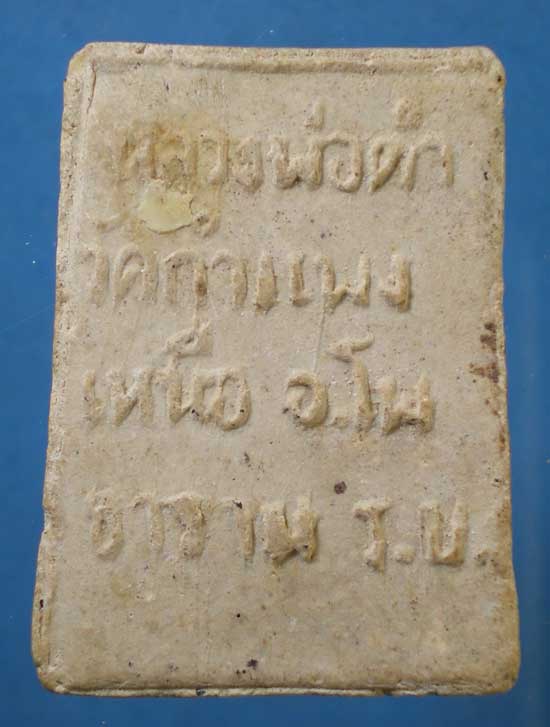 หลวงพ่อดำ
วัดกำแพง
เหนือ อ.โพ
ธาราม ร.บ.